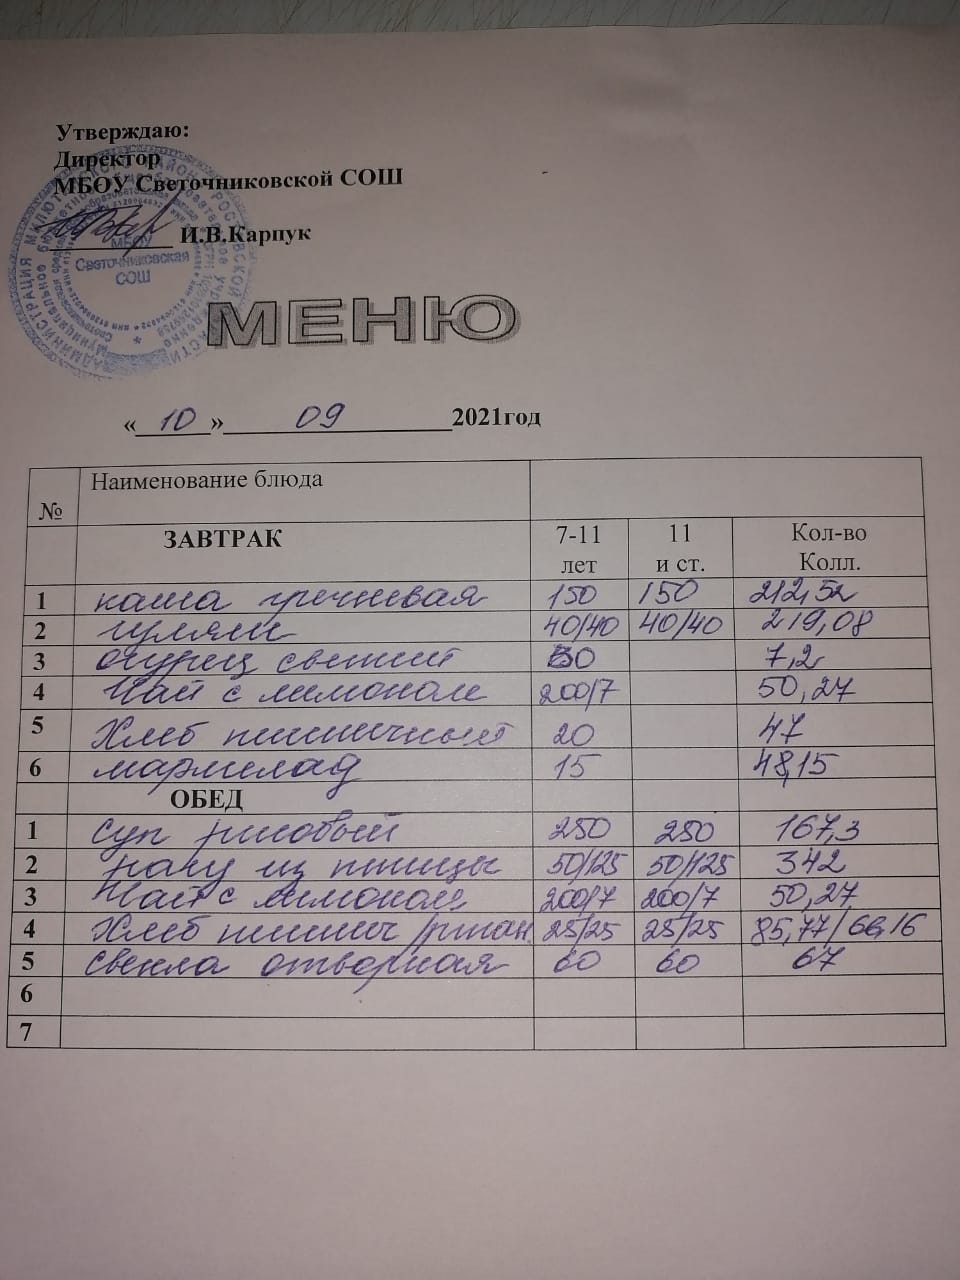 Утверждаю:
Директор
МБОУ Светочниковской СОШ
И.В.Карпук
МБОУ
Светочниковская
СОШ
МЕНЮ
« 10 » 09 2021год
№ Наименование блюда
ЗАВТРАК 7-11 лет 11 и ст. Кол-во Колл.
1 каша гречневая 150 150 212,52
2 гуляш 40/40 40/40 219,08
3 огурец свежий 30 7,2
4 Чай с лимоном 200/7 50,27
5 Хлеб пшеничный 20 47
6 мармелад 15 48,15
ОБЕД
1 суп рисовый 250 250 167,3
2 рагу из птицы 50/125 50/125 342
3 Чай с лимоном 200/7 200/7 50,27
4 Хлеб пшенич/ржан 25/25 25/25 85,77/66,16
5 свекла отварная 60 60 67
6
7